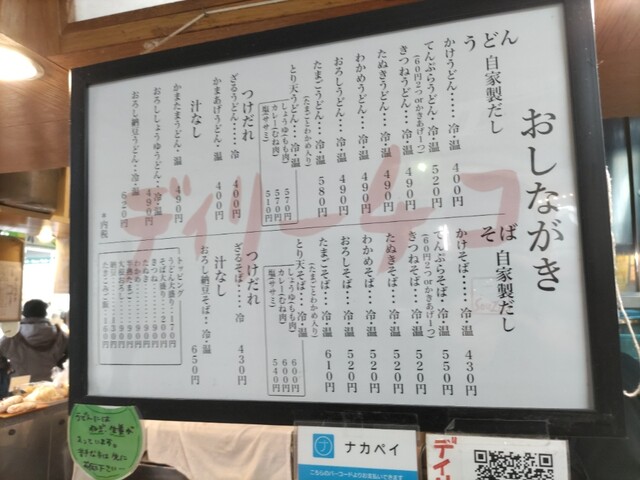 おしながき
うどん 自家製だし
かけうどん・・・・・冷・温 400円
てんぷらうどん・冷・温 520円
(60円2つorかきあげ一つ)
きつねうどん・冷・温 490円
たぬきうどん・冷・温 490円
わかめうどん・冷・温 490円
おろしうどん・・・冷・温 490円
たまごうどん・・・冷・温 580円
(たまごとわかめ入り)
とり天うどん・冷・温
しょうゆ(もも肉) 570円
カレー(むね肉) 570円
塩(ササミ) 510円
つけだれ
ざるうどん・・・・・冷 400円
かまあげうどん・温 400円
汁なし
かまたまうどん・温 490円
おろししょうゆうどん・・冷 490円
おろし納豆うどん・・冷
そば 自家製だし
かけそば・・・・冷・温 430円
てんぷらそば・冷・温 550円
(60円2つorかきあげ一つ)
きつねそば・・冷・温 520円
たぬきそば・・冷・温 520円
わかめそば・・冷・温 520円
おろしそば・・冷・温 520円
たまごそば・・冷・温 610円
(たまごとわかめ入り)
とり天そば・・冷・温
しょうゆ(もも肉) 600円
カレー(むね肉) 600円
塩(ササミ) 540円
つけだれ
ざるそば・・・・冷 430円
汁なし
おろし納豆そば・・冷・温 650円
トッピング
うどん大盛り・・170円
そば大盛り・・200円
きつね
たぬき
わかめ
たきこみご飯
*内税
デイリーチコ
ナカペイ
こちらのバーコードよりお支払いできます
デイリ